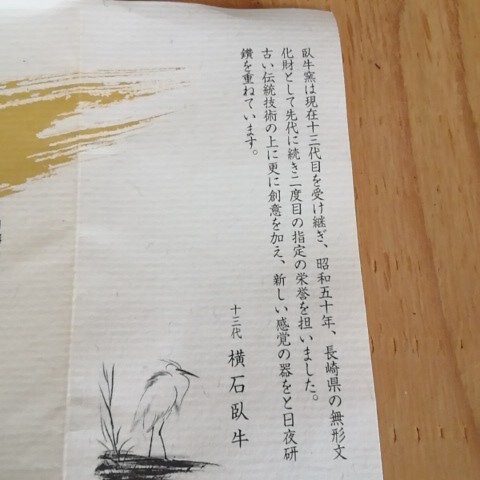 臥牛窯は現在十三代目を受け継ぎ、昭和五十年、長崎県の無形文
化財として先代に続き二度目の指定の栄誉を担いました。
古い伝統技術の上に更に創意を加え、新しい感覚の器をと日夜研
鑽を重ねています。
十三代 横石臥牛